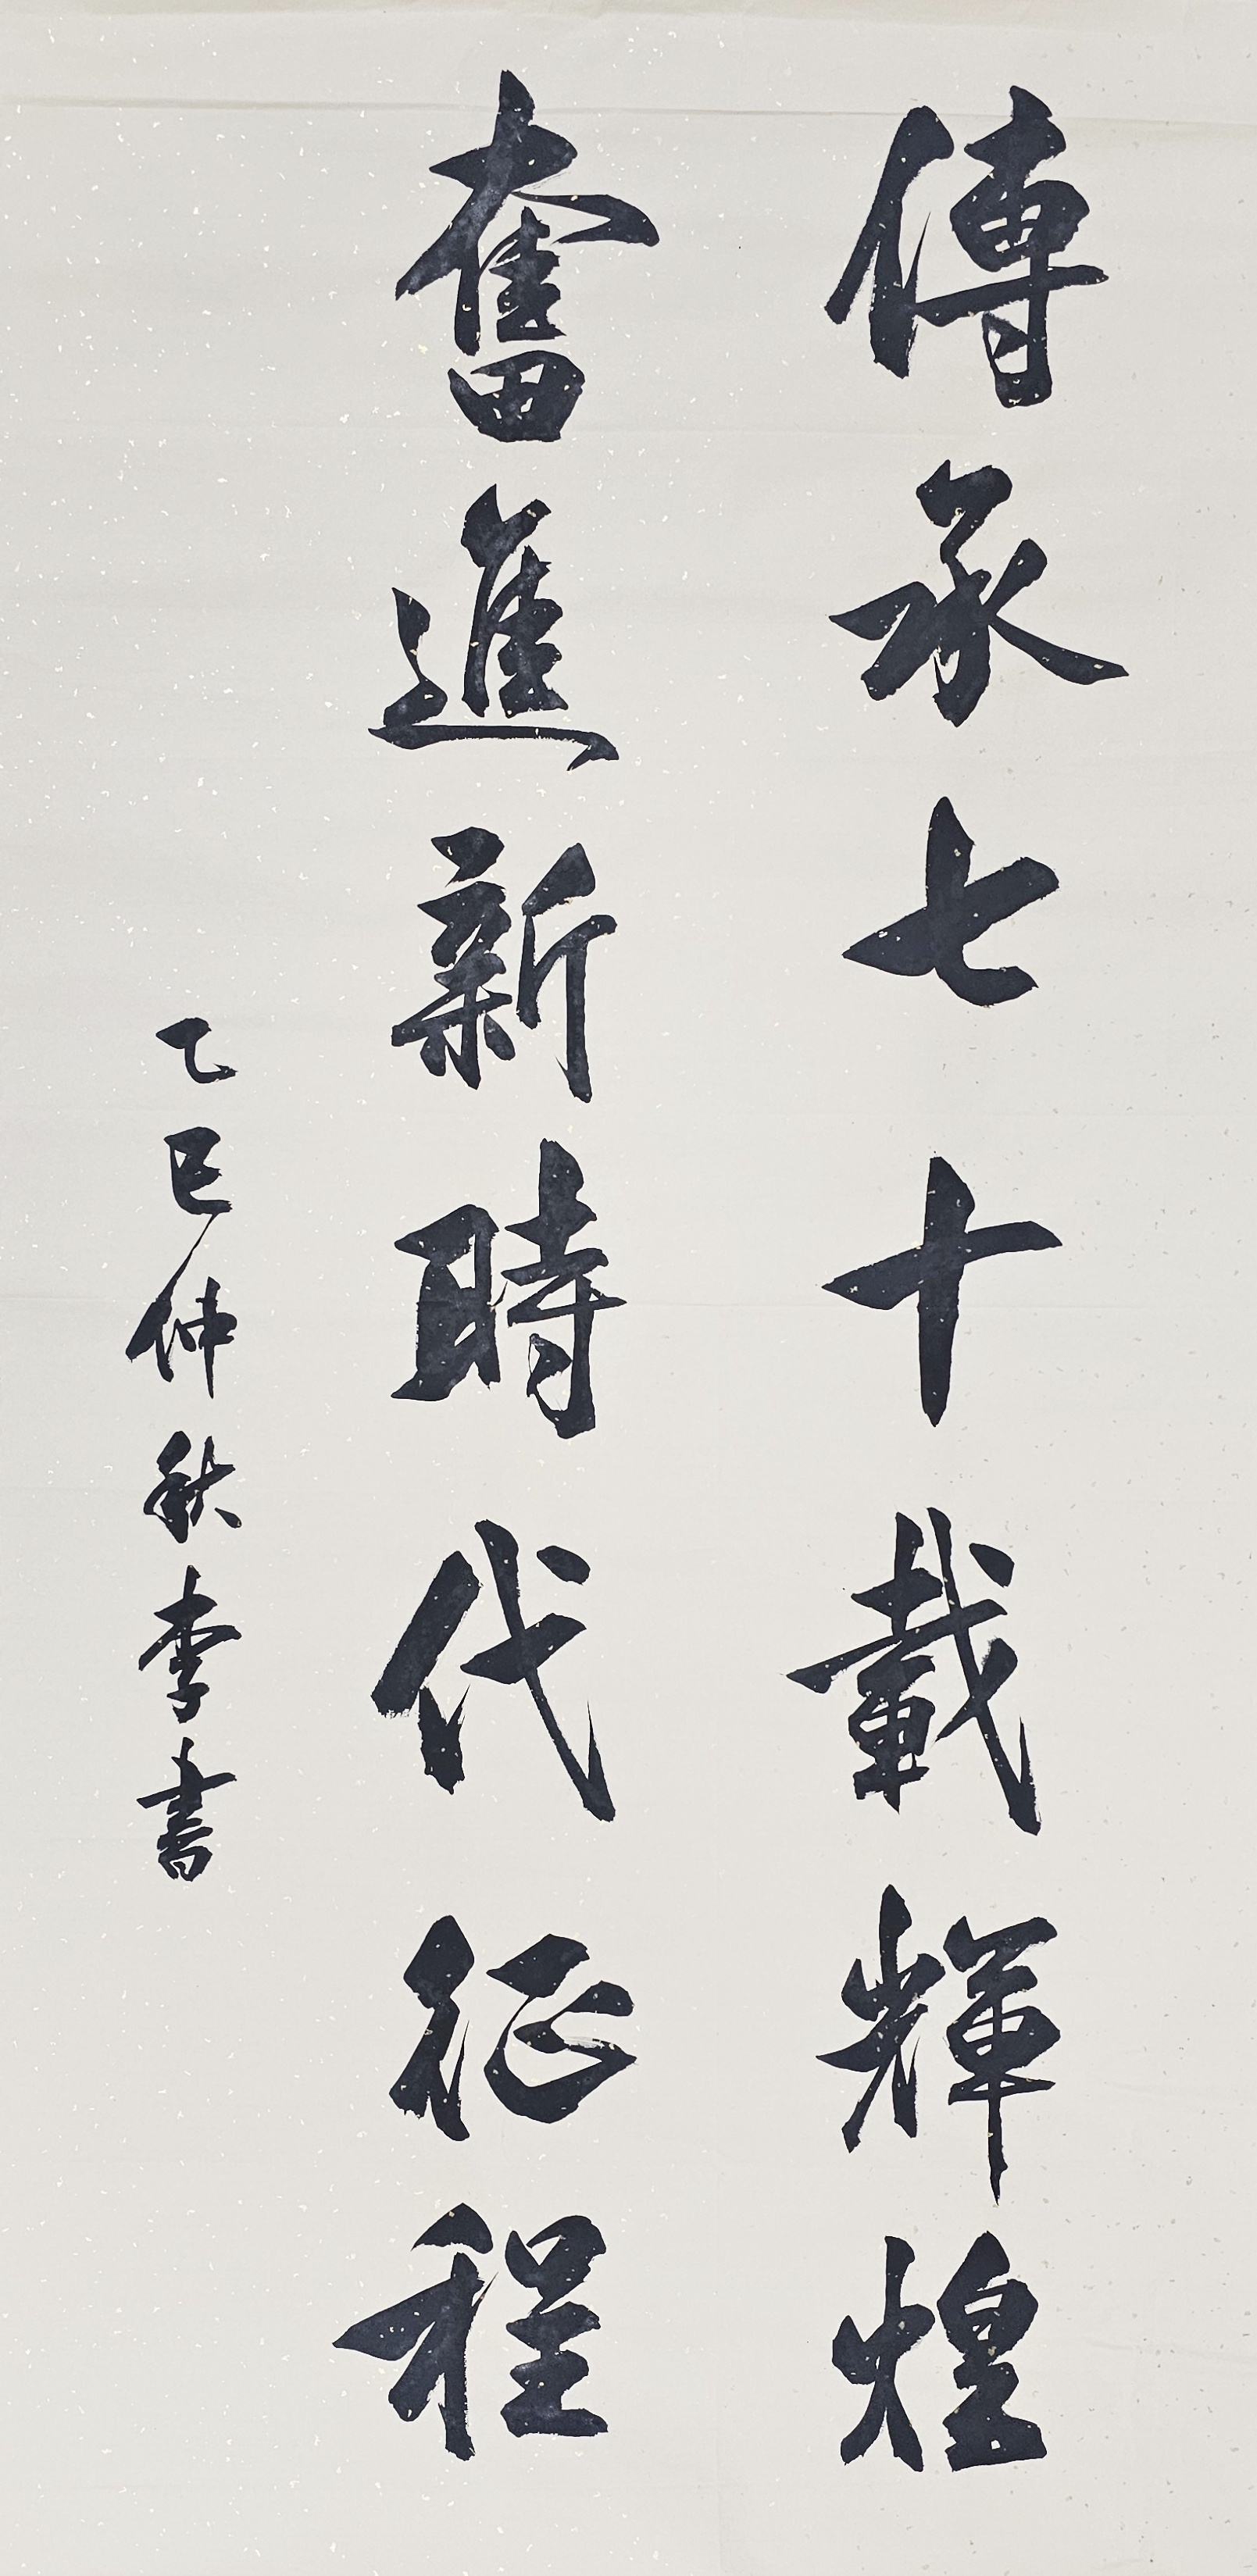 傳承七十載輝煌
奮進新時代征程
乙巳仲秋李書